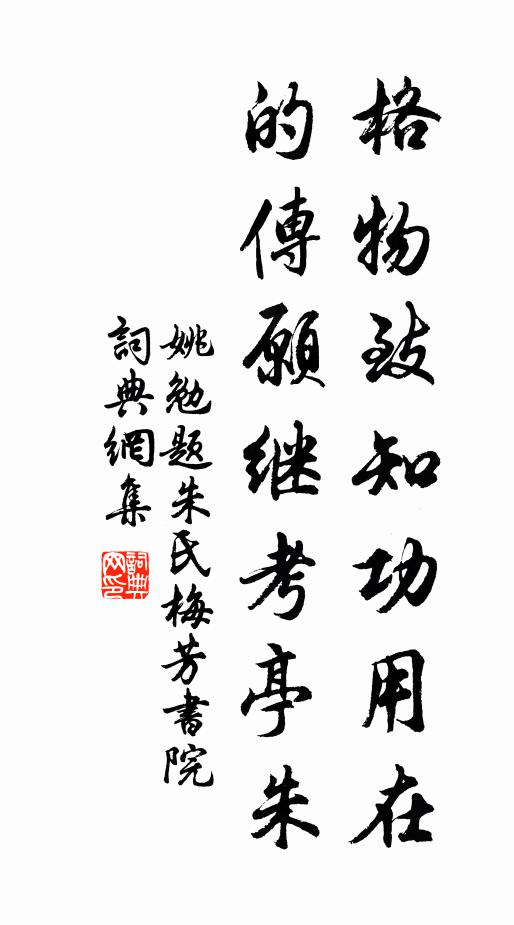 格物致知功用在
的傳願继考亭朱
姚勉题朱氏梅芳書院
詞典網集
詞典网印